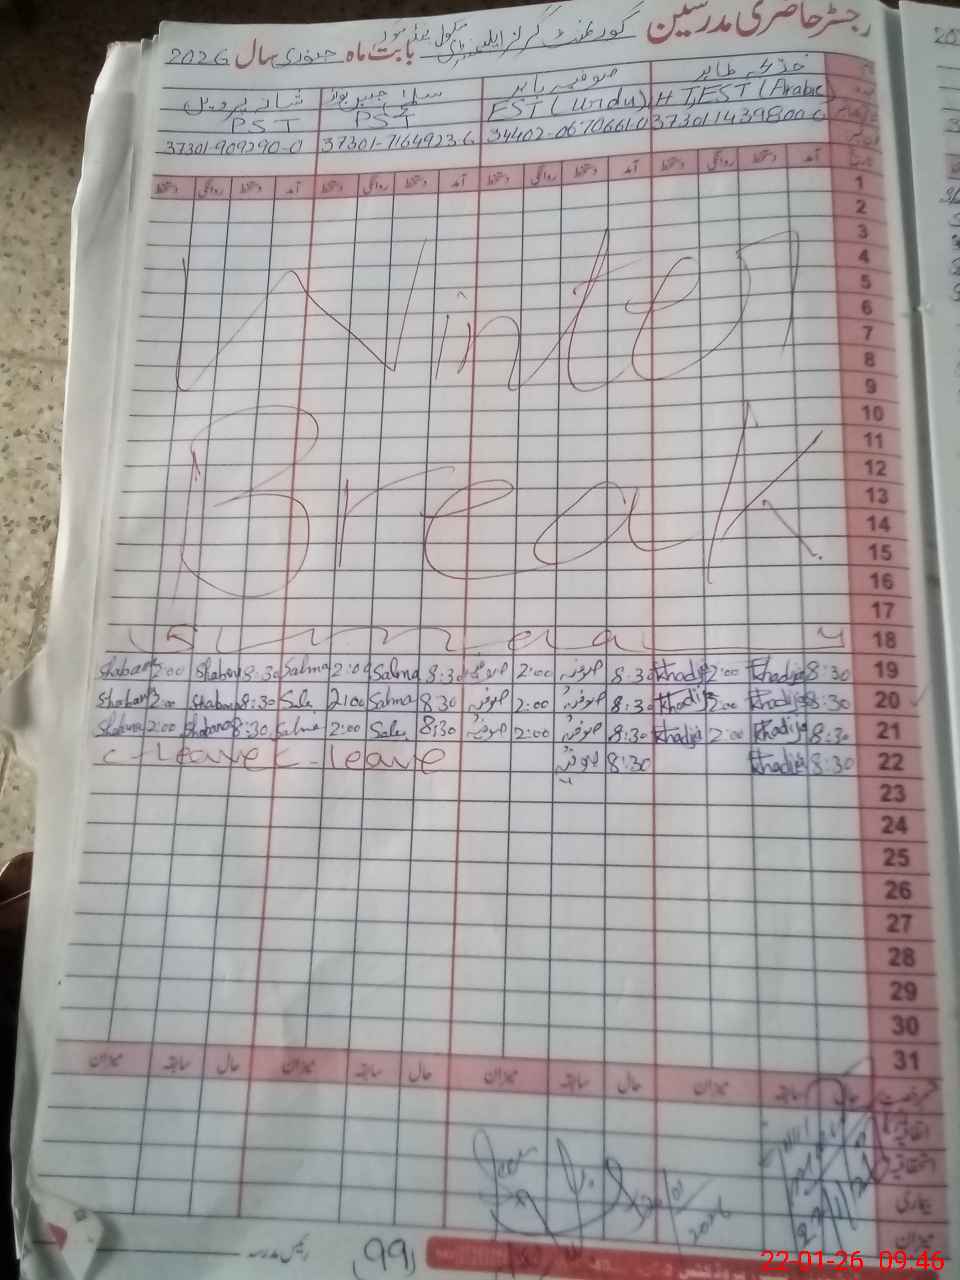 رجسٹر حاضری مدرسین گورنمنٹ گرلز سکول بابت ماہ جنوری سال 2026
خدیجہ طاہر صوفیہ بابر
HT,EST (Arabic) EST (Urdu) PST PST
3730114398006 34402-0670661-0 37301-7164923-6 37301-909290-0
آمد دستخط روانگی دستخط آمد دستخط روانگی دستخط آمد دستخط روانگی دستخط آمد دستخط روانگی دستخط
1
2
3
4
5
6
7
8
9
Winter
10
11
12
13
14
15
16
Break
17
18 Sunday
19 8:30 Khadija 2:00 Khadija 8:30 صوفیہ 2:00 صوفیہ 8:30 Salma 2:00 Salma 8:30 Shabana 2:00 Shabana
20 8:30 Khadija 2:00 Khadija 8:30 صوفیہ 2:00 صوفیہ 8:30 Salma 2:00 Salma 8:30 Shabana 2:00 Shabana
21 8:30 Khadija 2:00 Khadija 8:30 صوفیہ 2:00 صوفیہ 8:30 Salma 2:00 Salma 8:30 Shabana 2:00 Shabana
22 8:30 Khadija 8:30 صوفیہ C-leave C-leave
23
24
25
26
27
28
29
30
31
حال سابقہ میزان حال سابقہ میزان حال سابقہ میزان حال سابقہ میزان
اتفاقیہ
بیماری
میزان
رئیس مدرسہ
(99)
22-01-26 09:46